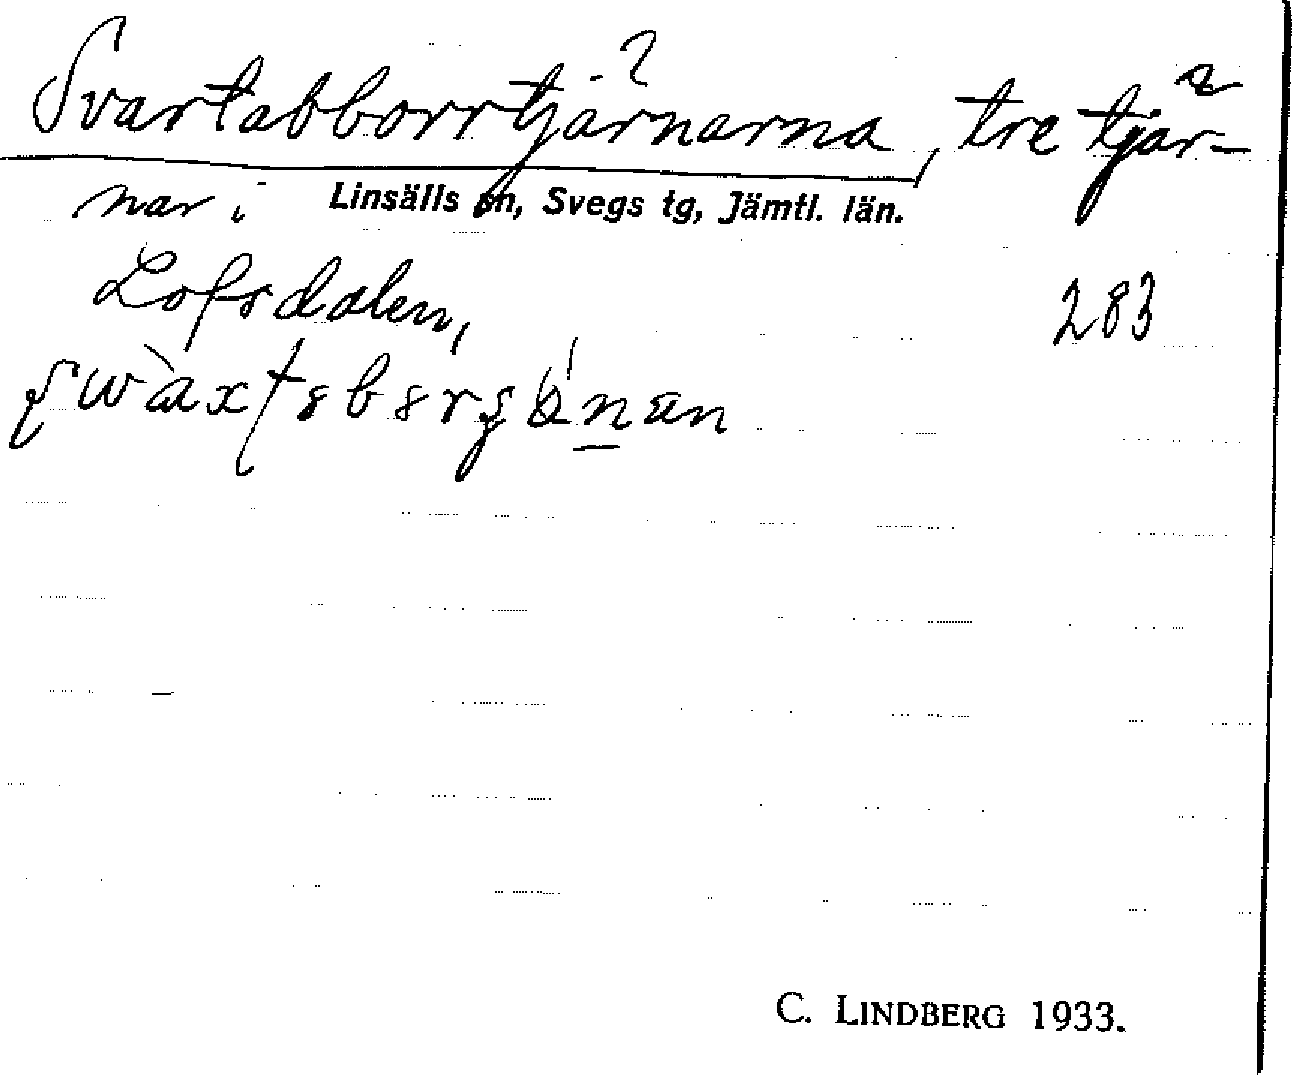 Svartabborrtjärnarna, tre tjär-
nar i Linsälls sn, Svegs tg, Jämtl. län.
Lofsdalen,
283
C. LINDBERG 1933.